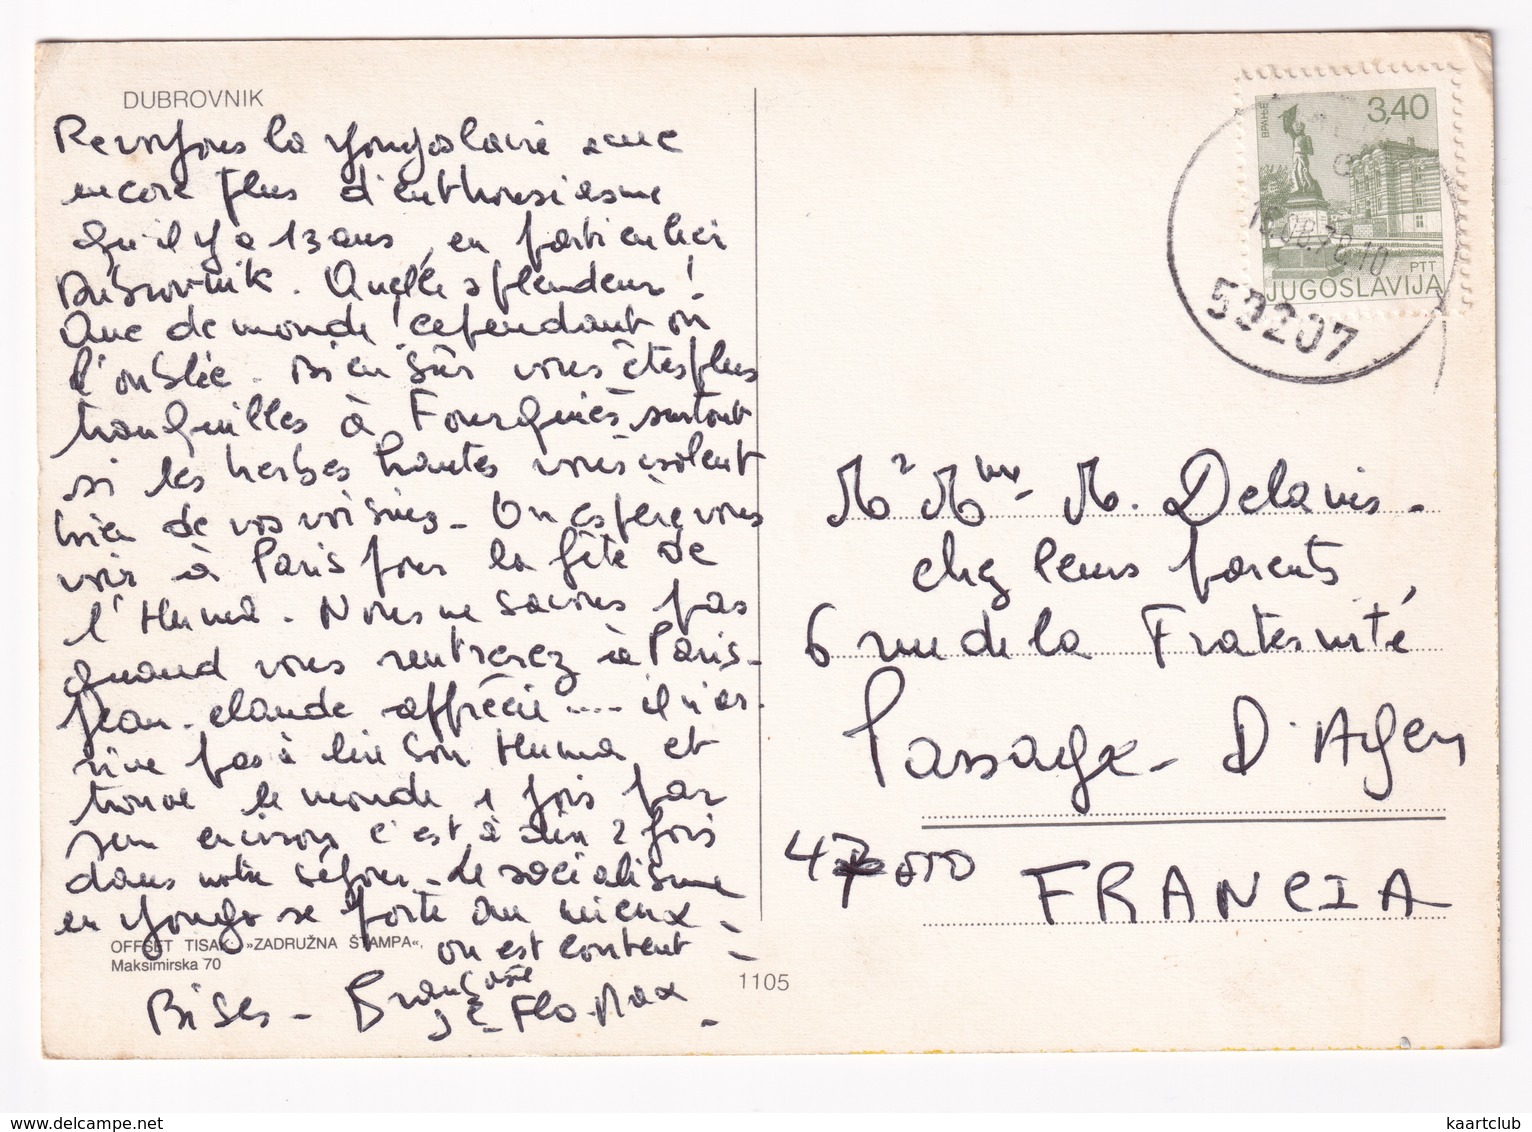 DUBROVNIK
Revoyons la Yougoslavie avec
encore plus d'enthousiasme
qu'il y a 13 ans, en particulier
Dubrovnik. Quelle splendeur!
Que de monde! cependant on
l'oublie. Bien sûr vous êtes plus
tranquilles à Fourquiès surtout
si les herbes hautes vous isolent
bien de vos voisins. On espère vous
voir à Paris pour la fête de
l'Huma. Nous ne savons pas
quand vous rentrerez à Paris.
Jean-claude apprécie.... il n'ar-
rive pas à lire son Huma et
trouve le monde 1 fois par
semaine environ c'est à dire 2 fois
dans notre séjour. le socialisme
en Yougo se porte au mieux
on est content
Bises - Françoise
J C Flo-Max
OFFSET TISAK: »ZADRUŽNA ŠTAMPA«,
Maksimirska 70
1105
ВРАЊЕ
3,40
PTT
JUGOSLAVIJA
.08.78.10
50207
Mr Mme M. Delanis.
chez leurs parents
6 rue de la Fraternité,
Passage - D'Agen
47 000
FRANCIA
kaartclub